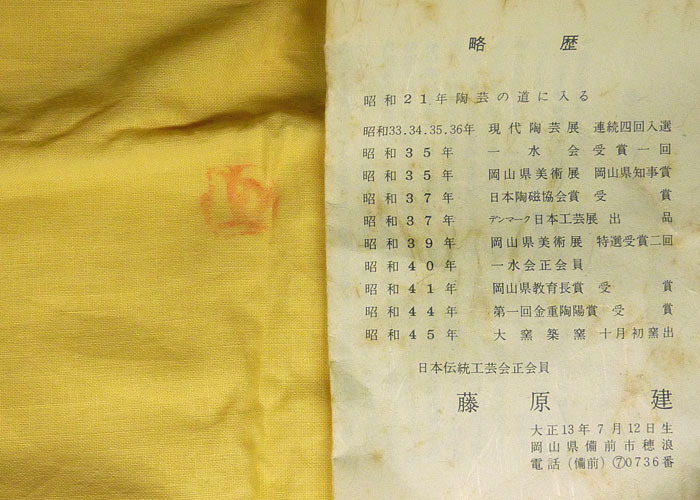 略 歴
昭和21年陶芸の道に入る
昭和33.34.35.36年 現代陶芸展 連続四回入選
昭和35年 一水会受賞一回
昭和35年 岡山県美術展 岡山県知事賞
昭和37年 日本陶磁協会賞 受賞
昭和37年 デンマーク日本工芸展 出品
昭和39年 岡山県美術展 特選受賞二回
昭和40年 一水会正会員
昭和41年 岡山県教育長賞 受賞
昭和44年 第一回金重陶陽賞 受賞
昭和45年 大窯築窯 十月初窯出
日本伝統工芸会正会員
藤原 建
大正13年7月12日生
岡山県備前市穂浪
電話(備前)⑦0736番